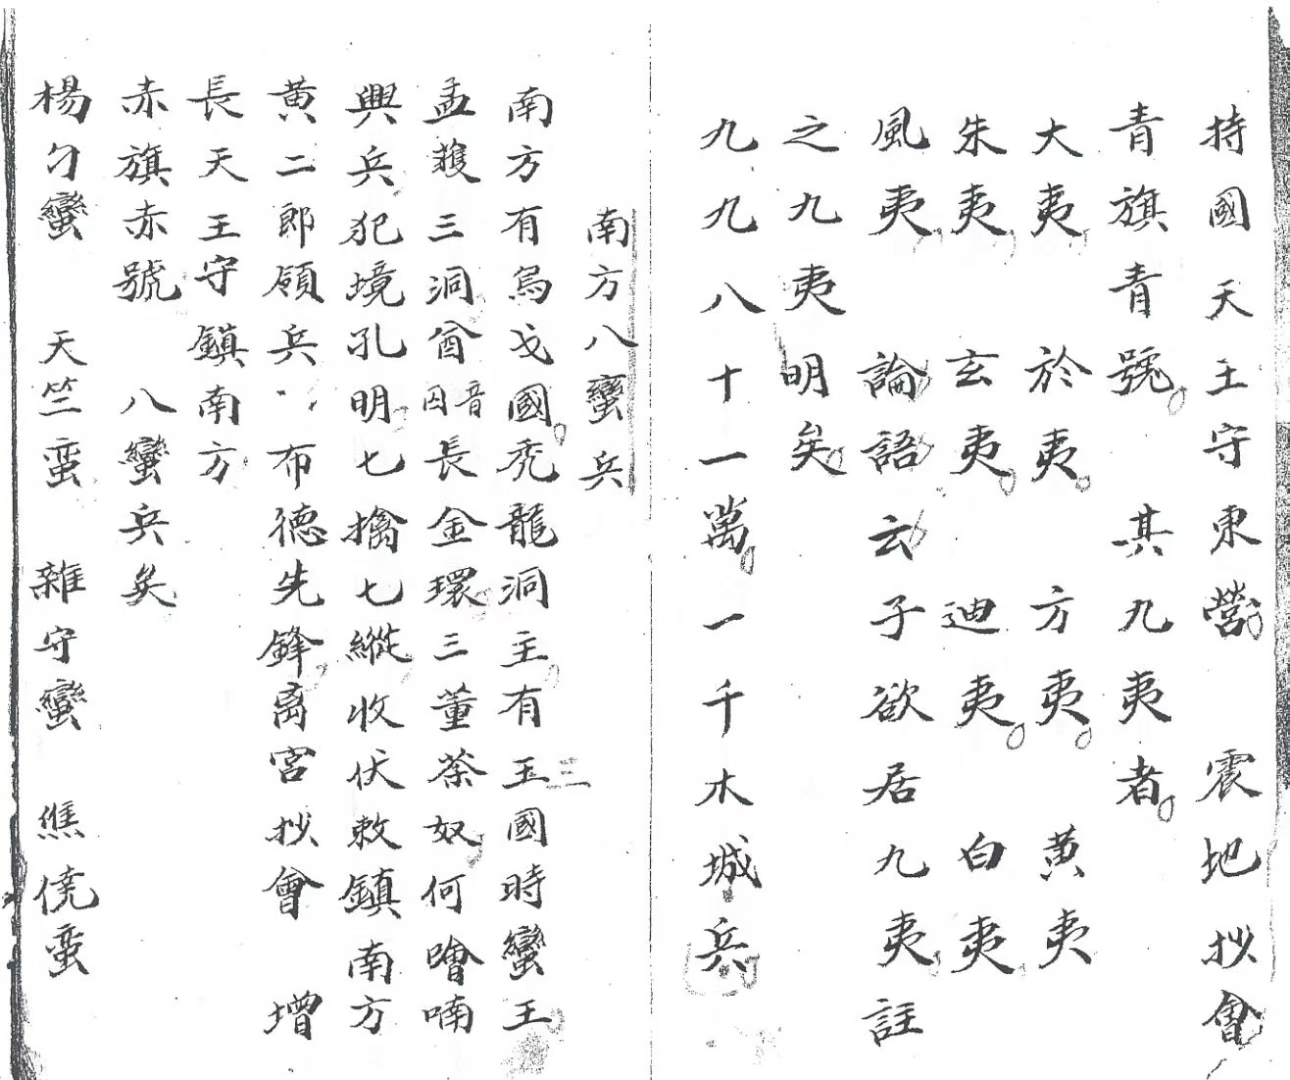 持國天王守東營 震地抄會
青旗青號 其九夷者
大夷 於夷 方夷 黄夷
朱夷 玄夷 迪夷 白夷
風夷 論語云子欲居九夷註
之九夷明矣
九九八十一萬一千木城兵
南方八蠻兵
南方有烏戈國禿龍洞主有玉國時蠻王
孟獲三洞酋音因長金環三董荼奴何噲喃
興兵犯境孔明七擒七縱收伏敕鎮南方
黄二郎領兵布德先鋒离宮抄會 增
長天王守鎮南方
赤旗赤號 八蠻兵矣
楊刁蠻 天竺蛮 雜守蠻 僬僥蛮
三